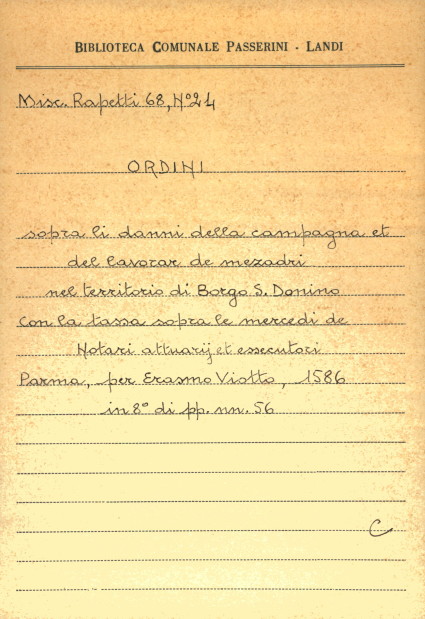 BIBLIOTECA COMUNALE PASSERINI - LANDI
Misc. Rapetti 68, Nº 24
ORDINI
sopra li danni della campagna et
del lavorar de mezadri
nel territorio di Borgo S. Donino
Con la tassa sopra le mercedi de
Notari attuarij et essecutori
Parma, per Erasmo Viotto, 1586
in 8° di pp. nn. 56
C